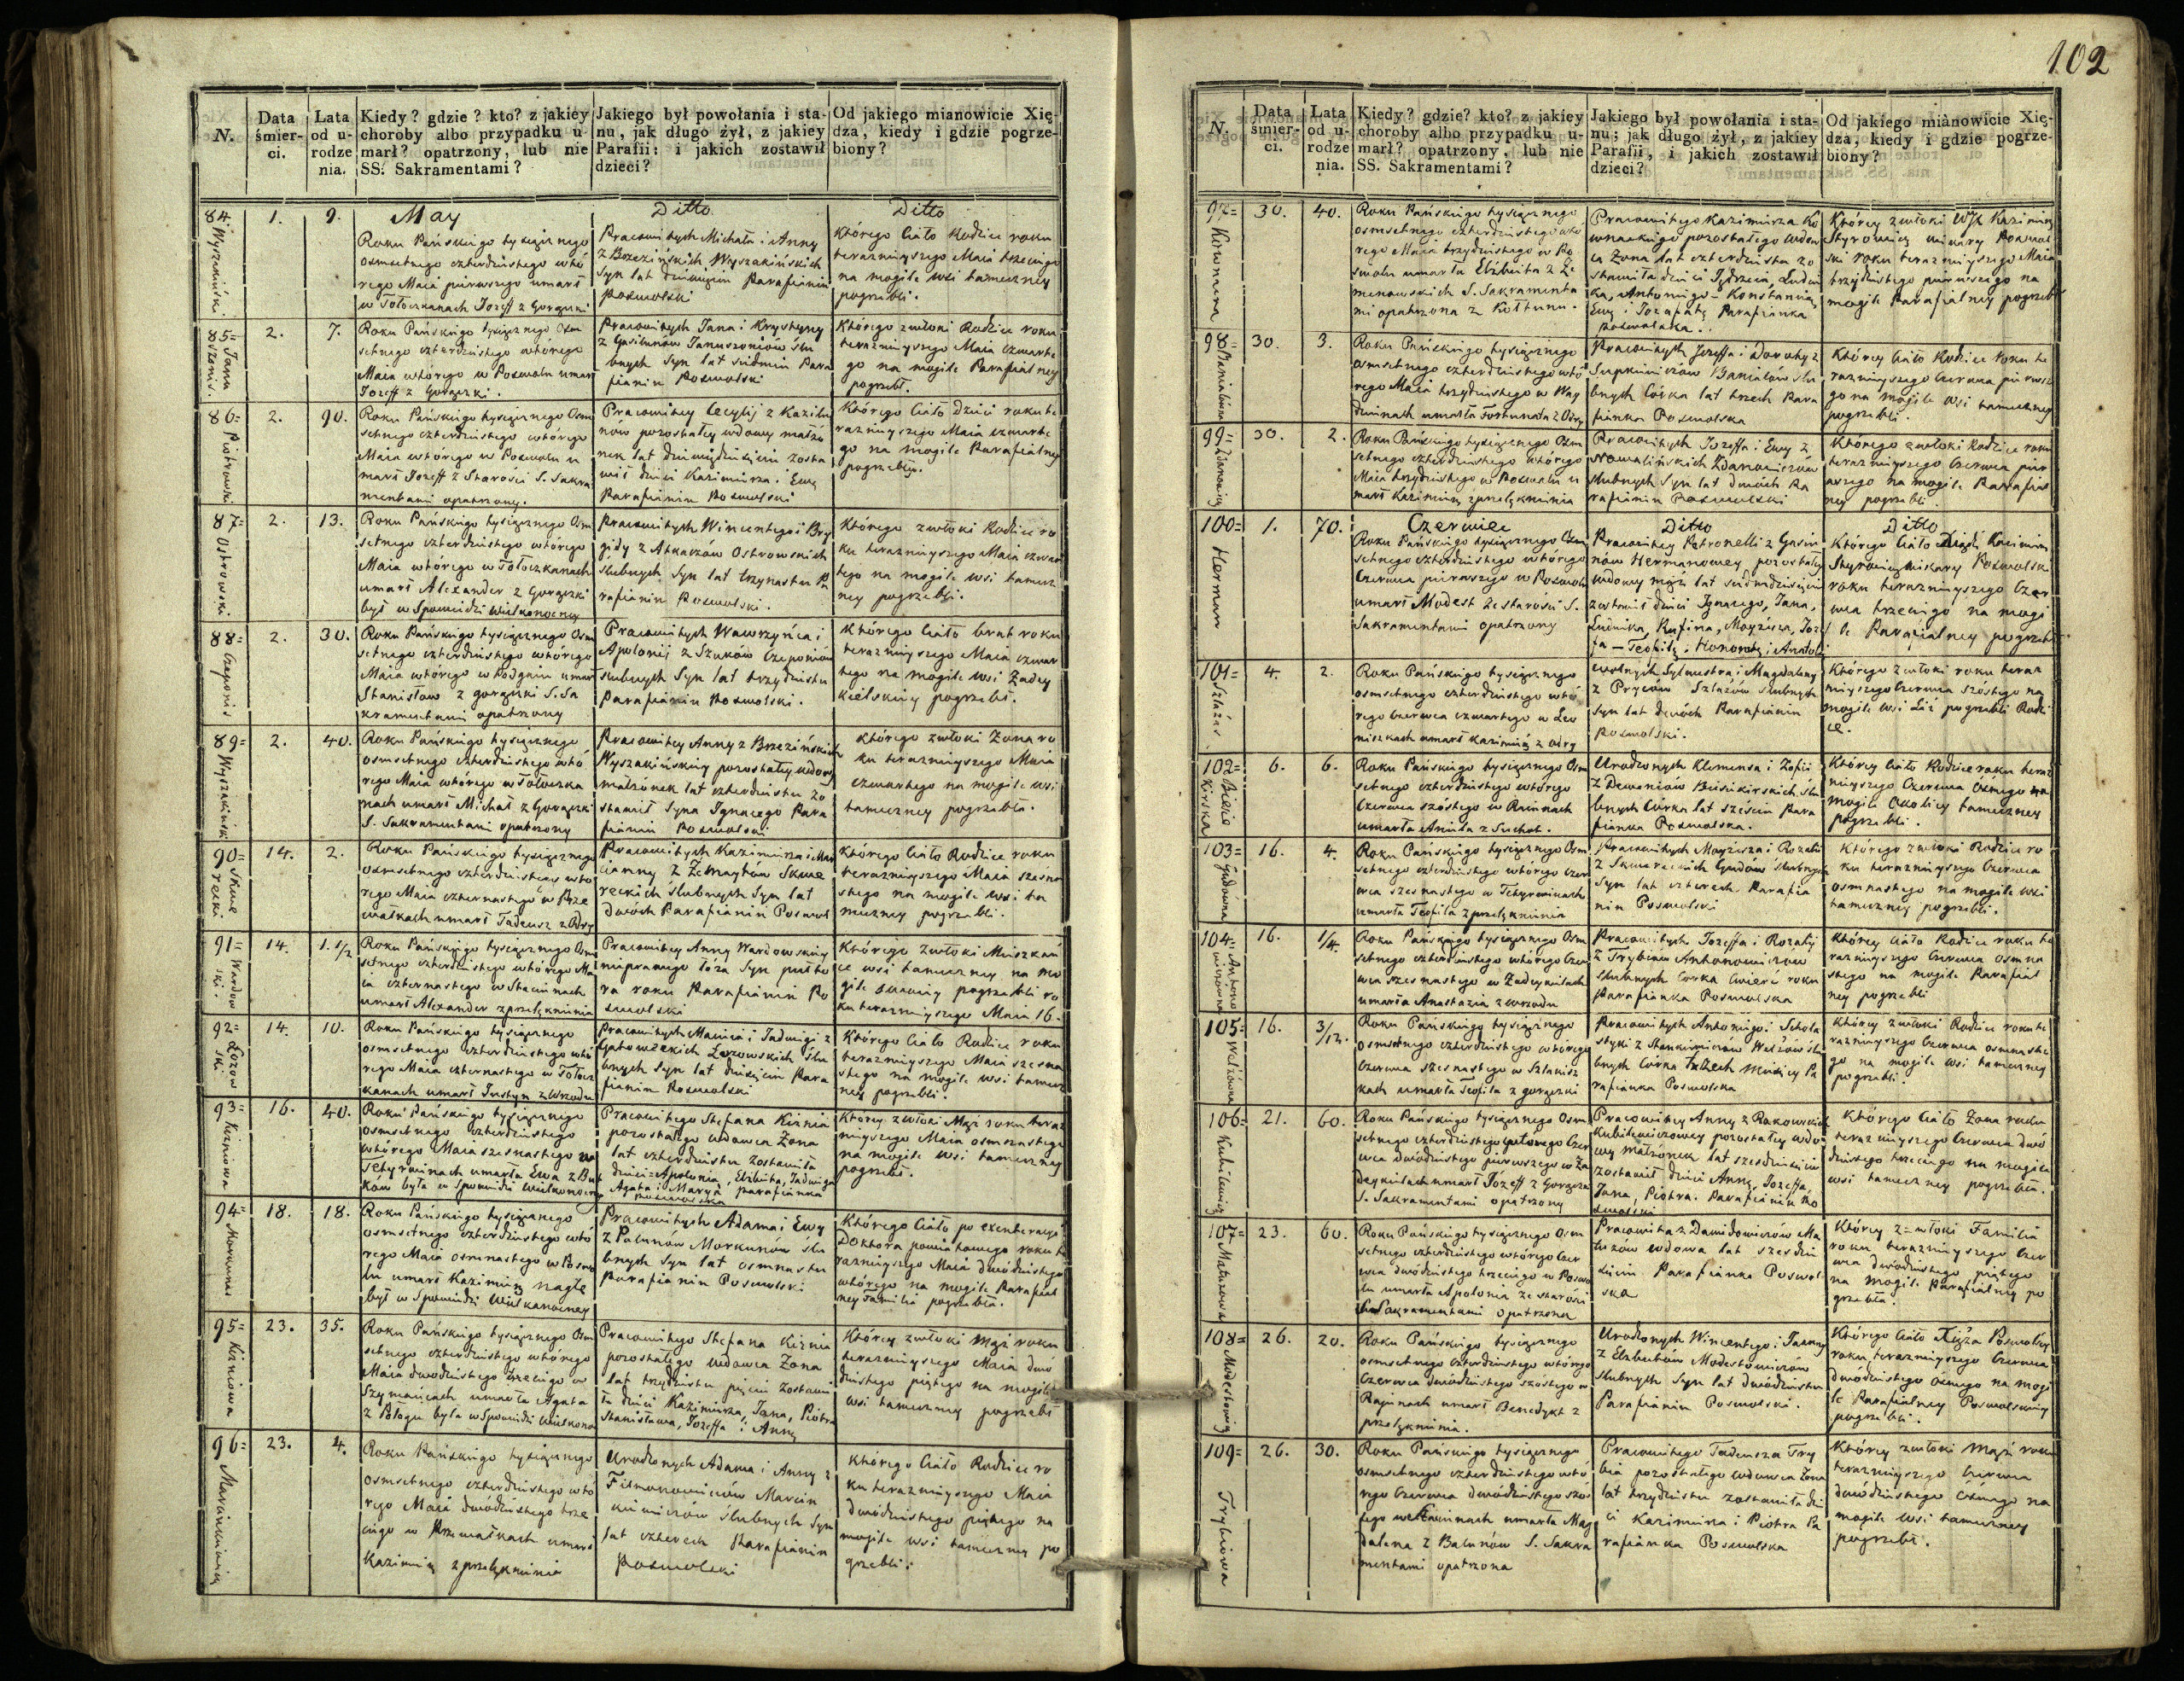 102
N.
Data śmier-ci.
Lata od u-rodze nia.
Kiedy? gdzie? kto? z jakiey
choroby albo przypadku u-
marł? opatrzony, lub nie
SS. Sakramentami?
Jakiego był powołania i sta-
nu, jak długo żył, z jakiey
Parafii: i jakich zostawił
dzieci?
Od jakiego mianowicie Xię-
dza, kiedy i gdzie pogrze-
biony?
84 Wyszakiński
1.
9.
May
Roku Pańskiego tysiącznego
osmsetnego czterdziestego wtó
rego Maia pierwszego umarł
w Tołoczkanach Jozeff z Gorączki
Ditto
Pracowitych Michała i Anny
z Brzezińskich Wyszakińskich
Syn lat dziewięciu Parafianin
Poswolski
Ditto
Którego Ciało Rodzice roku
terazniyszego Maia trzeciego
na mogile wsi tameczney
pogrzebli.
85= Janu szonis
2.
7.
Roku Pańskiego tysiącznego Osm
setnego czterdziestego wtórego
Maia wtórego w Poswolu umarł
Jozeff z Gorączki.
Pracowitych Jana i Krystyny
z Gasiunów Januszoniów Ślu
bnych Syn lat siedmiu Para
fianin Poswolski
Którego zwłoki Rodzice roku
terazniyszego Maia czwarte
go na mogile Parafialney
pogrzebł.
86= Piotrowski
2.
90.
Roku Pańskiego tysiącznego Osm
setnego czterdziestego wtórego
Maia wtórego w Poswolu u
marł Jozeff z Starości S. Sakra
mentami opatrzony.
Pracowitey Cecylij z Kazilu
nów pozostałey wdowy małżo
nek lat dziewięćdziesiąt zosta
wił dzieci Kazimierza. Ewę
Parafianin Poswolski
Którego Ciało Dzieci roku te
razniyszego Maia czwarte
go na mogile Parafialney
pogrzebły.
87= Ostrowski
2.
13.
Roku Pańskiego tysiącznego Osm
setnego czterdziestego wtórego
Maia wtórego w Tołoczkanach
umarł Alexander z Gorączki
był w Spowiedzi Wielkanocney
Pracowitych Wincentego i Bry
gidy z Atkaczów Ostrowskich
slubnych Syn lat trzynastu Pa
rafianin Poswolski.
Którego zwłoki Rodzice ro
ku terazniyszego Maia czwar
tego na mogile wsi tamecz
ney pogrzebli.
88= Czeponis
2.
30.
Roku Pańskiego tysiącznego Osm
setnego czterdziestego wtórego
Maia wtórego w Podgaiu umarł
Stanisław z gorączki S. Sa
kramentami opatrzony
Pracowitych Wawrzyńca i
Apolonij z Szuków Czeponiów
slubnych Syn lat trzydziestu
Parafianin Poswolski.
Którego Ciało brat roku
terazniyszego Maia czwar
tego na mogile wsi Zadey
kielskiey pogrzebł.
89= Wyszakiński
2.
40.
Roku Pańskiego tysiącznego
osmsetnego czterdziestego wtó
rego Maia wtórego w Tołoczka
nach umarł Michał z Gorączki
S. Sakramentami opatrzony
Pracowitey Anny z Brzezińskich
Wyszakińskiey pozostałey wdowy
małżonek lat czterdziestu zo
stawił Syna Ignacego Para
fianin Poswolski
Którego zwłoki Żona ro
ku terazniyszego Maia
czwartego na mogile wsi
tameczney pogrzebła.
90= Skwe recki
14.
2.
Roku Pańskiego tysiącznego
osmsetnego czterdziestego wtó
rego Maia czternastego w Prze
wałkach umarł Tadeusz z Odry
Pracowitych Kazimierza i Mar
cianny z Żemaytów Skwe
reckich slubnych Syn lat
dwóch Parafianin Poswol
Którego Ciało Rodzice roku
terazniyszego Maia szesna
stego na mogile wsi ta
meczney pogrzebli.
91= Wardow ski.
14.
1. 1/2
Roku Pańskiego tysiącznego Osm
setnego czterdziestego wtórego Ma
ia czternastego w Staciunach
umarł Alexander z przelęknienia
Pracowitey Anny Wardowskiey
nieprawego łoża Syn pułto
ra roku Parafianin Po
swolski
Którego zwłoki Mieszkań
ce wsi tameczney na mo
gile swoiey pogrzebli ro
ku terazniyszego Maia 16.
92= Łozow ski
14.
10.
Roku Pańskiego tysiącznego
osmsetnego czterdziestego wtó
rego Maia czternastego w Tołocz
kanach umarł Justyn z Wrzodu
Pracowitych Macieia i Jadwigi z
Łozowskich ślu
bnych Syn lat dziesięciu Para
fianin Poswolski
Którego Ciało Rodzice roku
terazniyszego Maia szesna
stego na mogile wsi tamecz
ney pogrzebli.
93= Kizniowa
16.
40.
Roku Pańskiego tysiącznego
osmsetnego czterdziestego
wtórego Maia szesnastego w
Tetyrwinach umarła Ewa z But
kow była w Spowiedzi Wielkanocney
Pracowitego Stefana Kiznia
pozostałego wdowca Żona
lat czterdziestu zostawiła
dzieci= Apolonią, Elzbieta, Jadwiga
Agata i Marya parafianka
Poswolska
Którey zwłoki Mąż roku teraz
nieyszego Maia osmnastego
na mogile wsi tameczney
pogrzebł.
94= Morkunas
18.
18.
Roku Pańskiego tysiącznego
osmsetnego czterdziestego wtó
rego Maia osmnastego w Poswo
lu umarł Kazimierz nagle
był w Spowiedzi Wielkanocney
Pracowitych Adama i Ewy
z Palunów Morkunów ślu
bnych Syn lat osmnastu
Parafianin Poswolski
Którego Ciało po exenteracyi
Doktora powiatowego roku te
razniyszego Maia dwódziestego
wtórego na mogile Parafial
ney Familia pogrzebła.
95= Kizniowa
23.
35.
Roku Pańskiego tysiącznego Osm
setnego czterdziestego wtórego
Maia dwódziestego trzeciego w
Szymańcach umarła Agata
z Połogu była w Spowiedzi Wielkano
Pracowitego Stefana Kiznia
pozostałego wdowca Żona
lat trzydziestu pięciu zostawi
ła dzieci Kazimierza, Jana, Piotra
Stanisława, Jozeffa i Annę
Którey zwłoki Mąż roku
terazniyszego Maia dwó
dziestego piątego na mogile
wsi tameczney pogrzebł
96= Marcinkiewicz
23.
4.
Roku Pańskiego tysiącznego
osmsetnego czterdziestego wtó
rego Maia dwódziestego trze
ciego w Przewałkach umarł
Kazimierz z przelęknienia
Urodzonych Adama i Anny z
Filmonowiczów Marcin
kiewiczów ślubnych Syn
lat czterech Parafianin
Poswolski
Którego Ciało Rodzice ro
ku terazniyszego Maia
dwódziestego piątego na
mogile wsi tameczney po
grzebli:
N.
Data śmier-ci.
Lata od u-rodze nia.
Kiedy? gdzie? kto? z jakiey
choroby albo przypadku u-
marł? opatrzony, lub nie
SS. Sakramentami?
Jakiego był powołania i sta-
nu; jak długo żył, z jakiey
Parafii, i jakich zostawił
dzieci?
Od jakiego mianowicie Xię-
dza, kiedy i gdzie pogrze-
biony?
97=
30.
40.
Roku Pańskiego tysiącznego
osmsetnego czterdziestego wtó
rego Maia trzydziestego w Po
swolu umarła Elżbieta z Ze
menowskich S. Sakramenta
mi opatrzona z Kołtunu.
Pracowitego Kazimierza Ko
pozostałego wdow
ca Żona lat czterdziestu zo
stawiła dzieci Jędrzeia, Ludwi
ka, Antoniego= Konstancią,
Ewę i Jozafatę Parafianka
Poswolska.
Którey zwłoki WJX Kazimierz
Styrowicz wikary Poswol
ski roku terazniyszego Maia
trzydziestego pierwszego na
mogile Parafialney pogrzebł
98=
30.
3.
Roku Pańskiego tysiącznego
osmsetnego czterdziestego wtó
rego Maia trzydziestego w Way
dunach umarła Fortunata z Odry
Pracowitych Jozeffa i Doroty z
Ślu
bnych Córka lat trzech Para
fianka Poswolska
Którey Ciało Rodzice roku te
razniyszego Czerwca pierwsze
go na mogile wsi tameczney
pogrzebli.
99= Zdanowicz
30.
2.
Roku Pańskiego tysiącznego Osm
setnego czterdziestego wtórego
Maia trzydziestego w Poswolu u
marł Kazimierz z przelęknienia
Pracowitych Jozeffa i Ewy z
Nowalińskich Zdanowiczów
slubnych Syn lat dwóch Pa
rafianin Poswolski
Którego zwłoki Rodzice roku
terazniyszego Czerwca pier
wszego na mogile Parafial
ney pogrzebli.
100= Herman
1.
70.
Czerwiec
Roku Pańskiego tysiącznego Osm
setnego czterdziestego wtórego
Czerwca pierwszego w Poswolu
umarł Modest ze starości S.
Sakramentami opatrzony
Ditto
Pracowitey Petronelli z Gasiu
nów Hermanowey pozostałey
wdowy mąż lat siedmdziesięciu
zostawił dzieci Ignacego, Jana,
Ludwika, Rufina, Moyżesza, Joze
fa — Teofilę, Honoratę i Anatolę
Ditto
Którego Ciało Xiądz Kazimierz
Styrowicz wikary Poswolski
roku terazniyszego Czer
wca trzeciego na mogi
le Parafialney pogrzebł
101= Szlażis
4.
2.
Roku Pańskiego tysiącznego
osmsetnego czterdziestego wtó
rego Czerwca czwartego w Lew
niszkach umarł Kazimierz z odry
wolnych Sylwestra i Magdaleny
z Pryców Szlażów slubnych
Syn lat dwóch Parafianin
Poswolski.
Którego zwłoki roku teraz
niyszego Czerwca szóstego na
mogile wsi pogrzebli Rodzi
ce.
102= Biecie Kirska
6.
6.
Roku Pańskiego tysiącznego Osm
setnego czterdziestego wtórego
Czerwca szóstego w Rainach
umarła Aniela z Suchot.
Urodzonych Klemensa i Zofii
z Dewaniów Bicikirskich ślu
bnych Córka lat sześciu Para
fianka Poswolska.
Którey Ciało Rodzice roku teraz
nieyszego Czerwca ósmego na
mogile Okolicy tameczney
pogrzebli.
103= Gudówna
16.
4.
Roku Pańskiego tysiącznego Osm
setnego czterdziestego wtórego Czer
wca szesnastego w Tetyrwinach
umarła Teofila z przelęknienia
Pracowitych Moyżesza i Rozalii
z Skwereckich Gudów ślubnych
Syn lat czterech Parafia
nin Poswolski
Którego zwłoki Rodzice ro
ku terazniyszego Czerwca
osmnastego na mogile wsi
tameczney pogrzebli.
104= Antono wiczówna
16.
1/4.
Roku Pańskiego tysiącznego Osm
setnego czterdziestego wtórego Czer
wca szesnastego w Zadeykielach
umarła Anastazia z wrzodu
Pracowitych Jozeffa i Rozalij
z Trybiów Antonowiczów
slubnych Corka Cwierć roku
Parafianka Poswolska
Którey Ciało Rodzice roku te
razniyszego Czerwca osmna
stego na mogile Parafial
ney pogrzebli
105= Walżówna
16.
3/12.
Roku Pańskiego tysiącznego
osmsetnego czterdziestego wtórego
Czerwca szesnastego w Szlanisz
kach umarła Teofila z gorączki
Pracowitych Antoniego i Schola
styki z Stankiewiczów Walżów ślu
bnych Córka trzech Miesięcy Pa
rafianka Poswolska
Którey zwłoki Rodzice roku te
razniyszego Czerwca osmnaste
go na mogile wsi tameczney
pogrzebli.
106= Kubilewicz
21.
60.
Roku Pańskiego tysiącznego Osm
setnego czterdziestego wtórego Czer
wca dwódziestego pierwszego w Za
deykielach umarł Jozeff z Gorączki
S. Sakramentami opatrzony
Pracowitey Anny z Rakowskich
Kubilewiczowey pozostałey wdo
wy małżonek lat szesdziesięciu
zostawił dzieci Annę, Jozeffa,
Jana, Piotra. Parafianin Po
swolski
Którego Ciało Żona roku
terazniyszego Czerwca dwó
dziestego trzeciego na mogile
wsi tameczney pogrzebła.
107= Matuzowa
23.
60.
Roku Pańskiego tysiącznego Osm
setnego czterdziestego wtórego Czer
wca dwódziestego trzeciego w Poswo
lu umarła Apolonia ze starości
S. Sakramentami opatrzona
Pracowita z Dawidowiczów Ma
tuzow wdowa lat szesdzie
sięciu Parafianka Poswol
ska
Którey z=włoki Familia
roku terazniyszego Czer
wca dwódziestego piątego
na mogile Parafialney po
grzebła.
108= Modestowicz
26.
20.
Roku Pańskiego tysiącznego
osmsetnego czterdziestego wtórego
Czerwca dwódziestego szóstego w
Rajunach umarł Benedykt z
przelęknienia.
Urodzonych Wincentego i Joanny
z Elzbutów Modestowiczów
slubnych Syn lat dwódziestu
Parafianin Poswolski.
Którego Ciało Xięża Poswolscy
roku terazniyszego Czerwca
dwódziestego ósmego na mogi
le Parafialney Poswolskiey
pogrzebli.
109= Trybiowa
26.
30.
Roku Pańskiego tysiącznego
osmsetnego czterdziestego wtó
rego Czerwca dwódziestego szós
tego umarła Mag
dalena z Balunów S. Sakra
mentami opatrzona
Pracowitego Tadeusza Try
bia pozostałego wdowca Żona
lat trzydziestu zostawiła dzie
ci Kazimierza i Piotra Pa
rafianka Poswolska
Którey zwłoki Mąż roku
terazniyszego Czerwca
dwódziestego ósmego na
mogile wsi tameczney
pogrzebł.